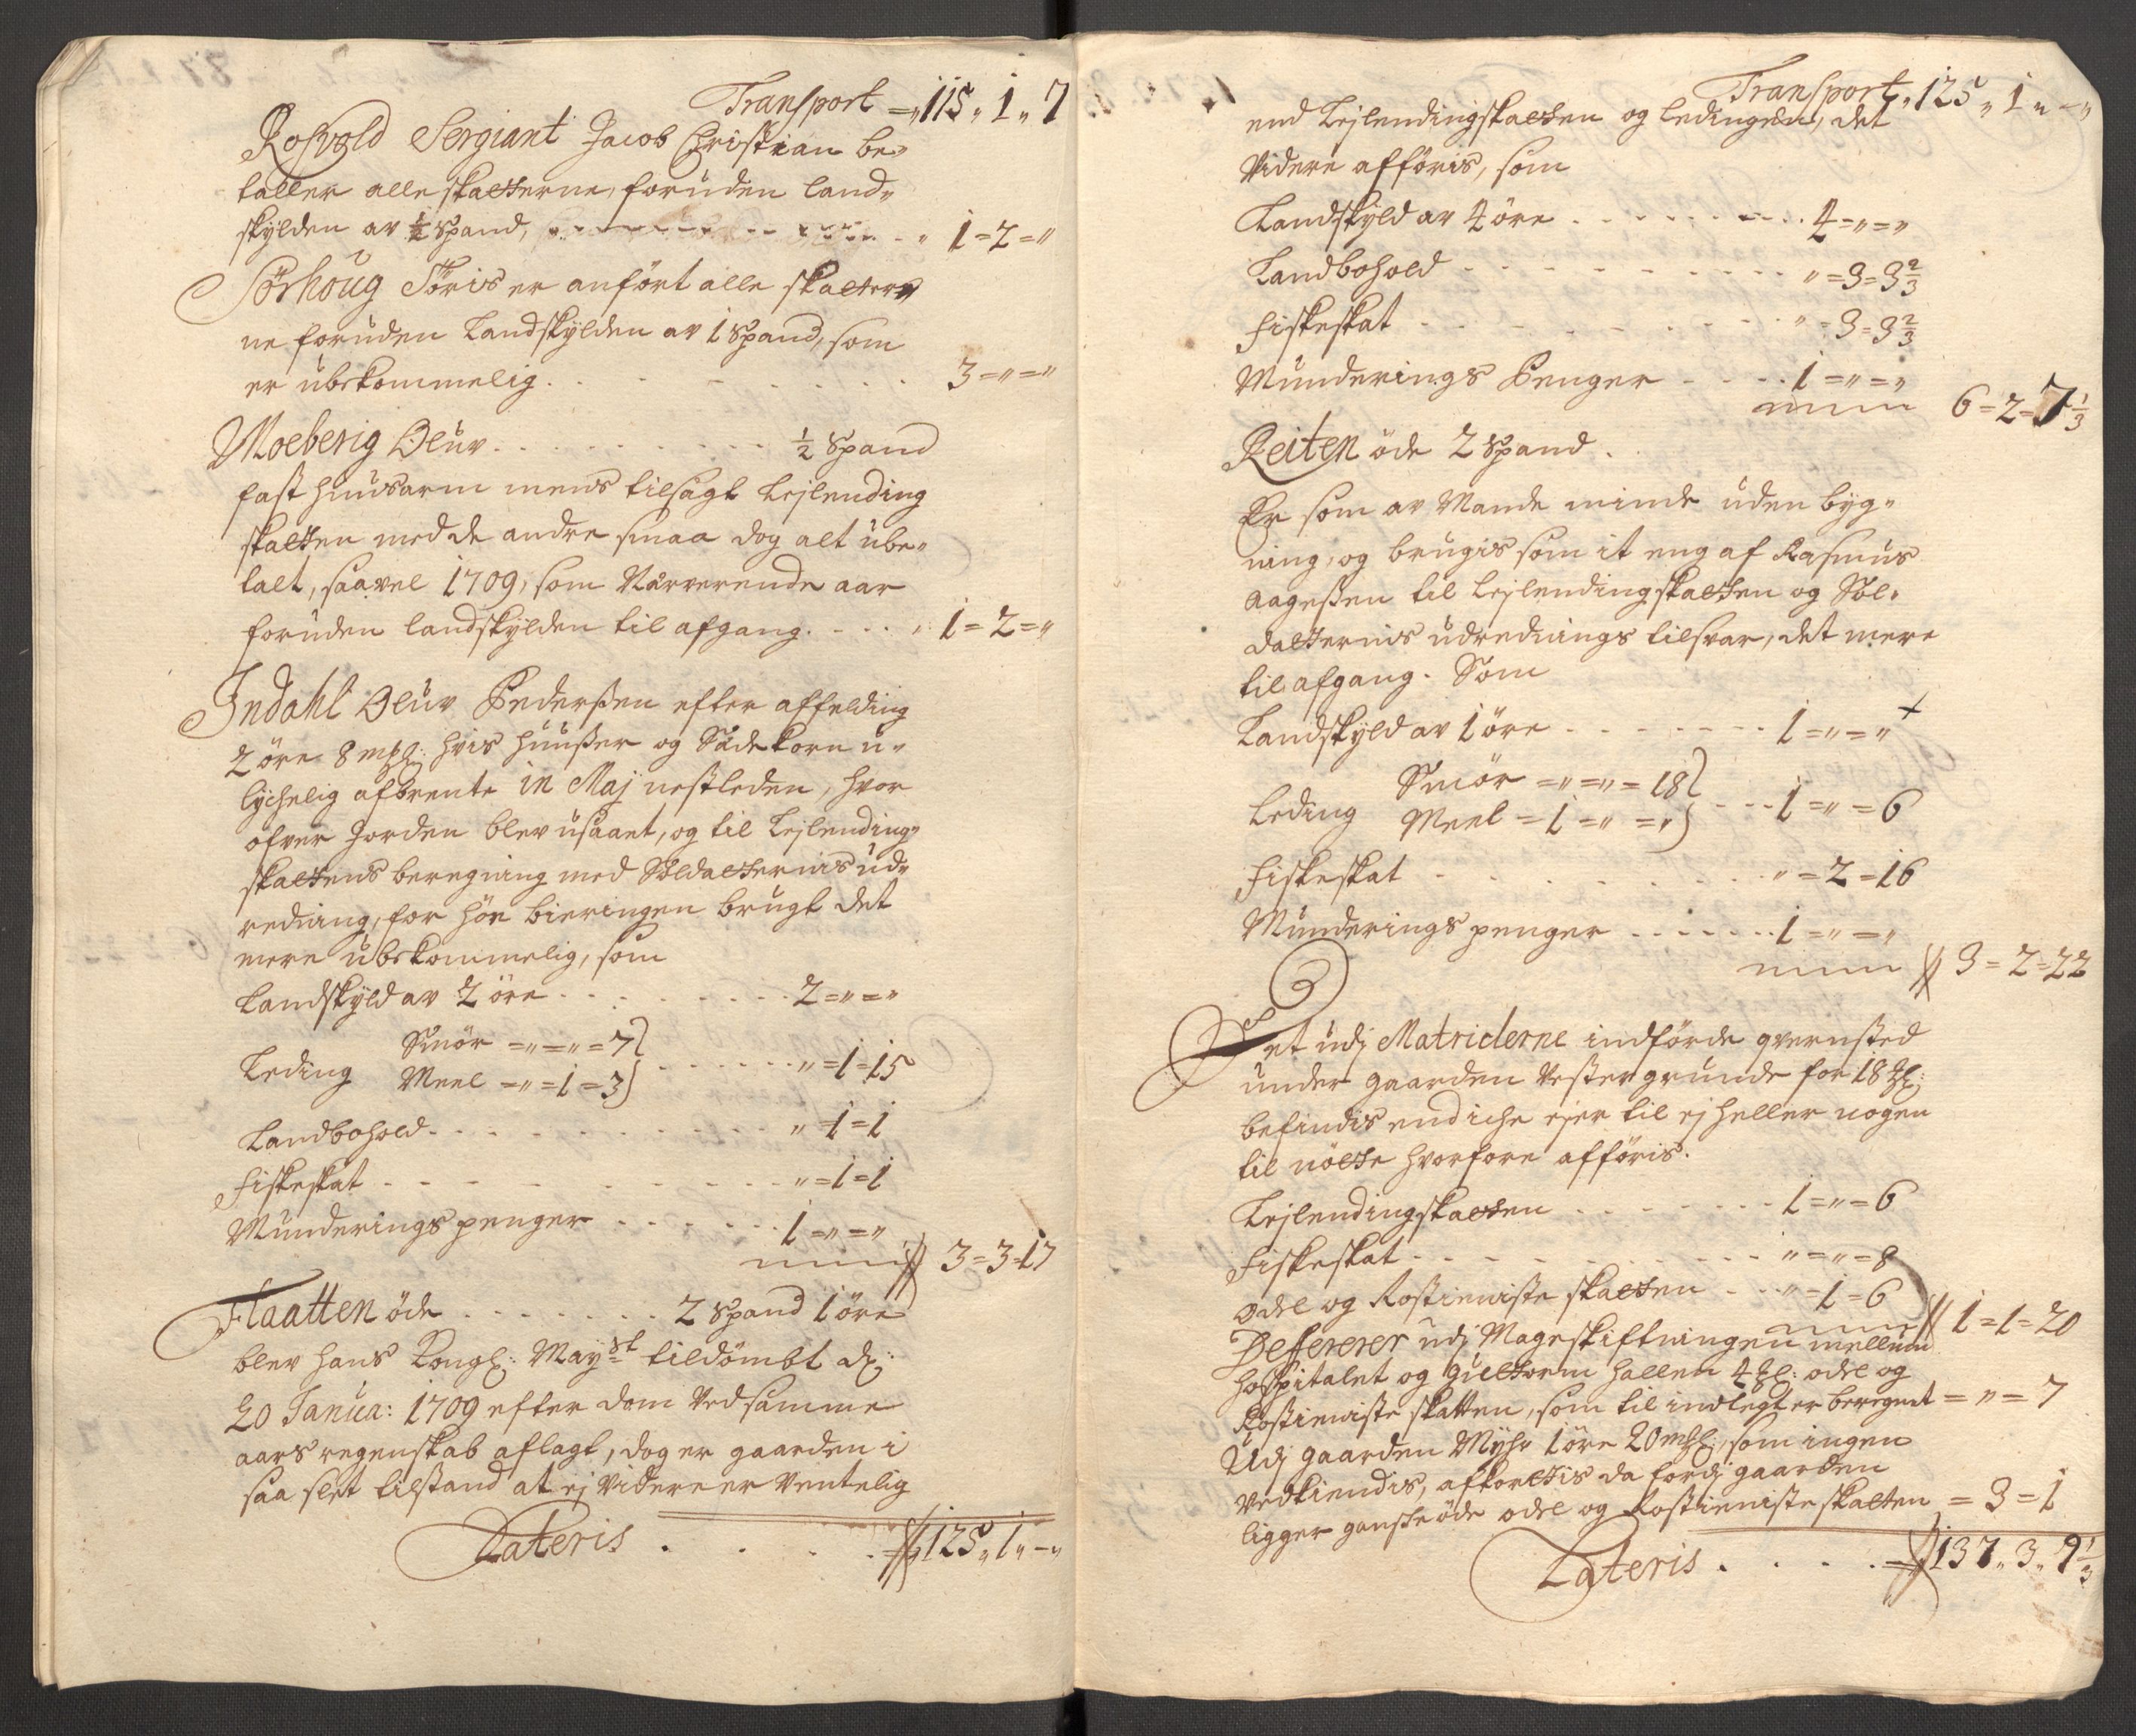 Transport = „ 115 „ 1 „ 7
Rosvold Sergiant Jacob Christian be„
taller alle skatterne, foruden land„
skylden av ½ Spand, . . . . . „ 1 = 2 = „
Sörhoug Töris er anfört alle skatter„
ne foruden Landskylden av 1 Spand, som
er übekommelig . . . . . 3 = „ = „
Moeberig Oluv . . . . . ½ Spand
fast huusarm mens tilsagt Lejlending
skatten med de andre smaa dog alt übe„
talt, saavel 1709, som Nærverende aar
foruden landskylden til afgang . . . „ 1 = 2 = „
Indahl Oluv Pederßen efter affelding
2 öre 8 mkl: hvis huußer og Sædekorn u„
lychelig afbrente in Maj nestleden, hvor
ofver Jorden blev usaaet, og til Lejlending„
skattens beregning med Soldatternis ud„
redning, for höe bieringen brugt det
mere übekommelig, som
Landskyld av 2 öre . . . . . 2 = „ = „
Smör = „ = „ = 7
Leding . . . . . „ = 1 = 15
Meel = „ = 1 = 3
Landbohold . . . . . „ = 1 = 1
Fiskeskat . . . . . „ = 1 = 1
Munderings penger . . . . . 1 = „ = „
3 = 3 = 17
Flaatten öde . . . . . 2 Spand 1 öre
blev hans Kongl: Mayst tildömbt d:
20 Janua: 1709 efter dom ved samme
aars regenskab aflagt, dog er gaarden i
saa slet tilstand at ej videre er ventelig
Lateris . . . . 125 „ 1 „ - „
Transport „ 125 „ 1 „ - „
end Lejlendingskatten og ledingen, det
videre afföris, som
Landskyld av 4 öre . . . . . 4 = „ = „
Landbohold . . . . . „ = 3 = 3 ⅔
Fiskeskat . . . . . „ = 3 = 3 ⅔
Munderings Penger . . . . 1 = „ = „
6 = 2 = 7 ⅓
Reiten öde 2 Spand.
Er som av Mande minde uden byg„
ning, og brugis som it eng af Rasmus
Aageßen til Lejlendingskatten og Sol„
datternis udrednings tilsvar, det mere
til afgang. Som
Landskyld av 1 öre . . . . . 1 = „ = „ +
Smör = „ = „ = 18
Leding . . . 1 = „ = 6
Meel = 1 = „ = „
Fiskeskat . . . . . „ = 2 = 16
Munderings penger . . . . . 1 = „ = „
3 = 2 = 22
Det udj Matriclerne indförde qvernsted
under gaarden Vestergrunde for 18 mkl:
befindis end iche ejer til ej heller nogen
til nötte hvorfore afföris.
Lejlendingskatten . . . . . 1 = „ = 6
Fiskeskat . . . . . „ = „ = 8
Odel og Rostieniste skatten . . „ = 1 = 6
1 = 1 = 20
Deffererer udj Mageskiftningen mellum
hospitalet og Guttorm Hallem 4 mkl: odel og
Rostieniste skatten, som til indlegt er beregnet = „ = 7
Udj gaarden Myhr 1 öre 20 mkl:, som ingen
vedkiendis, afkortis da fordj gaarden
ligger ganske öde odel og Rostieniste skatten = 3 = 1
Lateris . . . . 137 „ 3 „ 9 ⅓